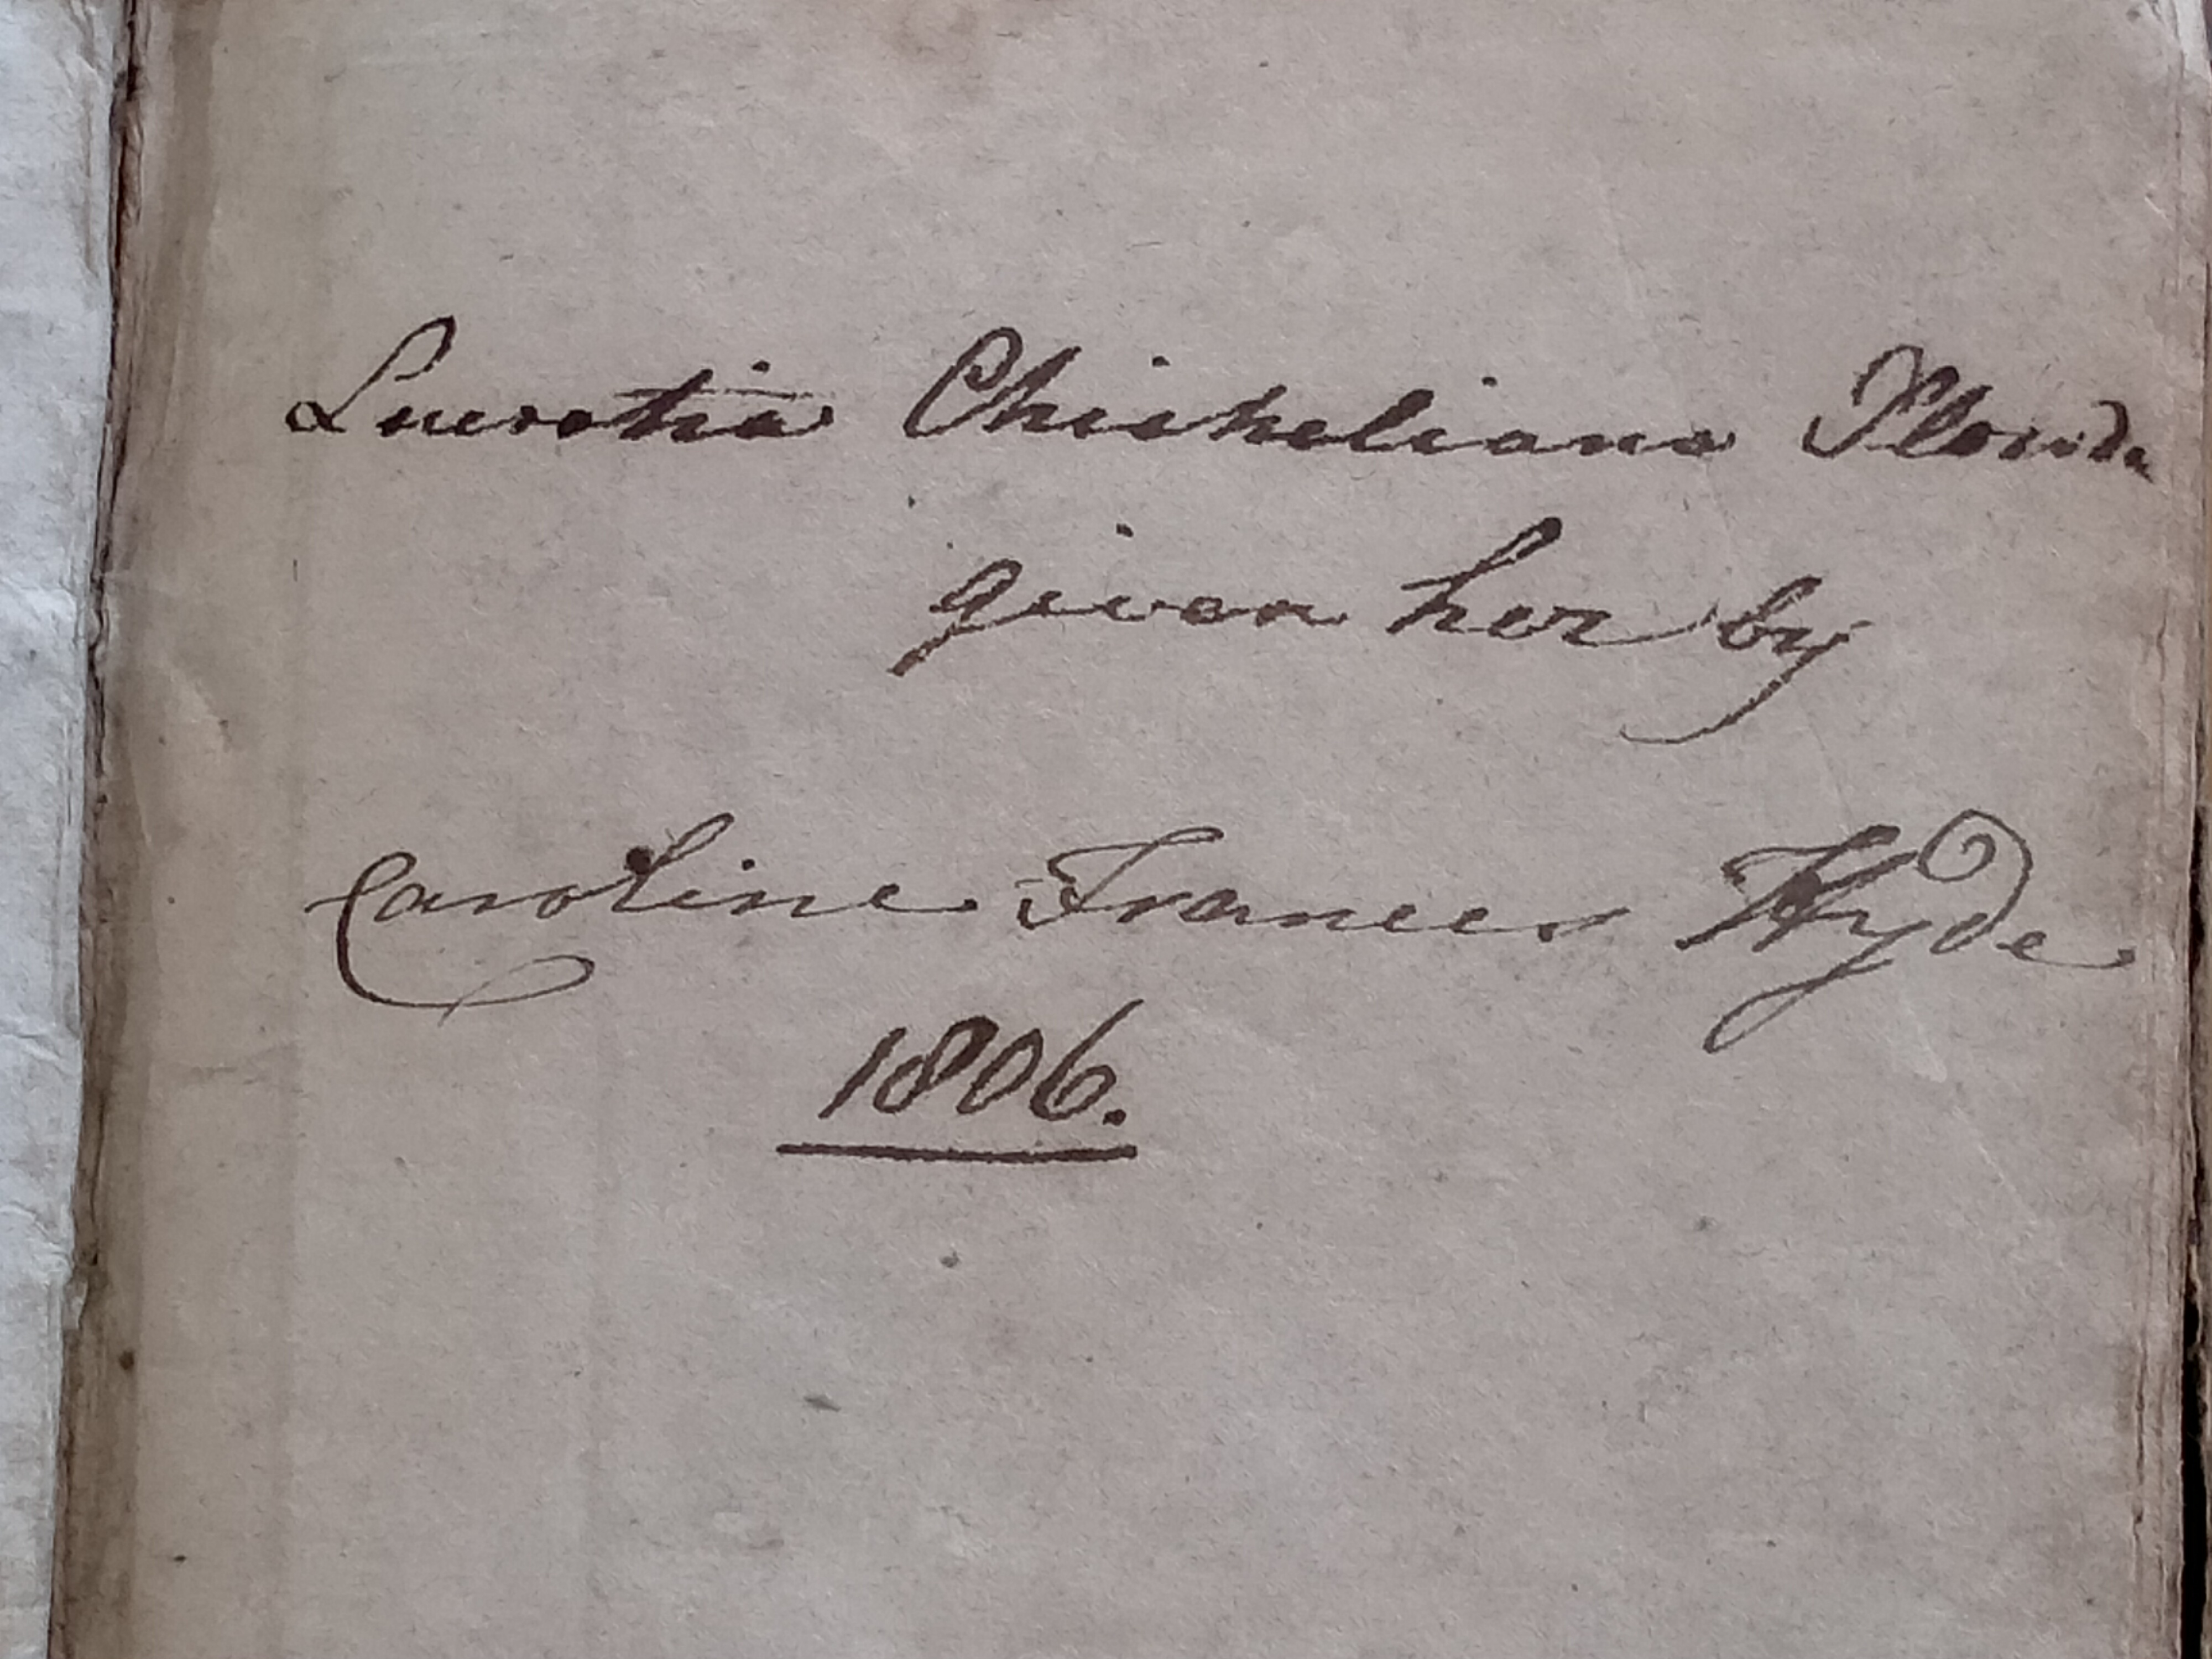 Lucretia Chicheliana
given her by
Caroline Frances Hyde
1806.